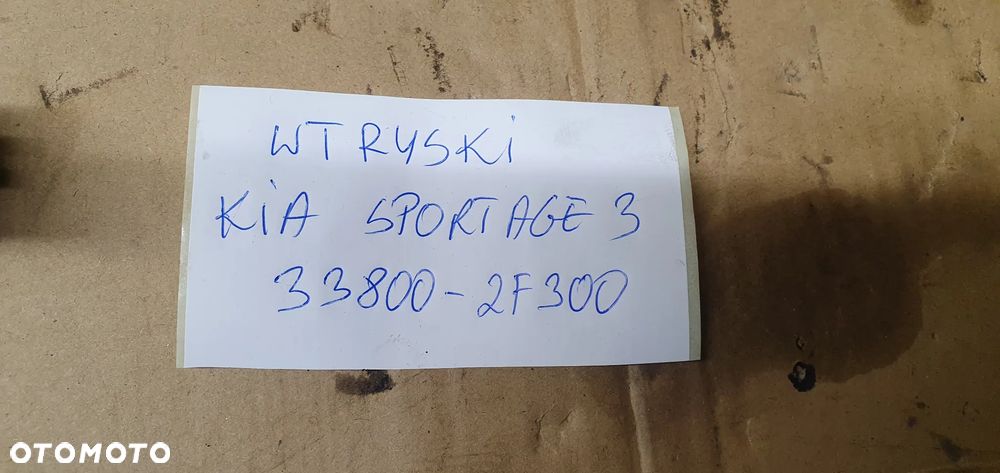 WTRYSKI
KIA SPORTAGE 3
33800-2F300
OTOMOTO